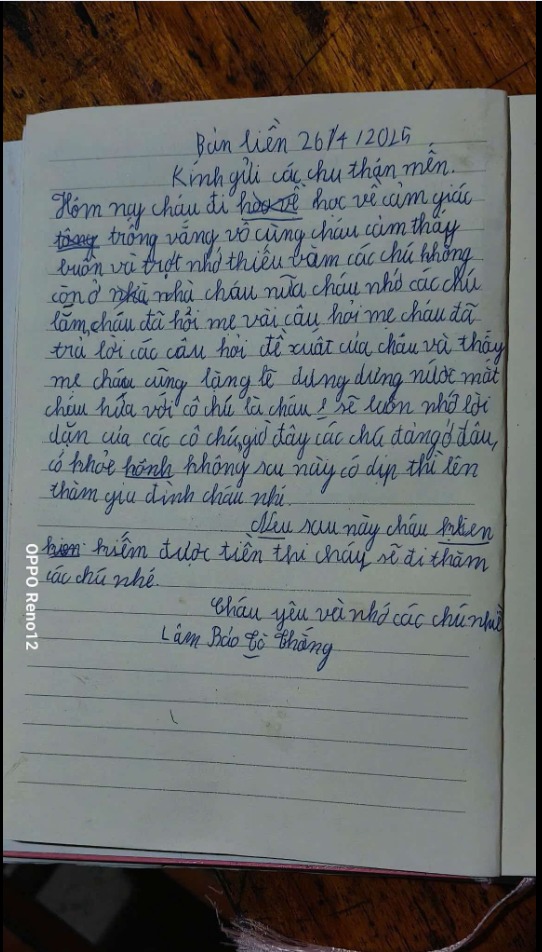 Bản liền 26/4/2025
Kính gửi các chu thân mến.
Hôm nay cháu đi học về cảm giác
trông vắng vô cùng cháu cảm thấy
buồn và trợt nhớ thiếu vằm các chú không
còn ở nhà cháu nữa cháu nhớ các chú
lắm, cháu đã hỏi mẹ vài câu hỏi mẹ cháu đã
trả lời các câu hỏi đề xuất của cháu và thấy
mẹ cháu cũng lặng lẽ dưng dưng nước mắt
cháu hứa với cô chú là cháu sẽ luôn nhớ lời
dặn của các cô chú, giờ đây các chú đang ở đâu,
có khỏe không sau này có dịp thì lên
thăm gia đình cháu nhé.
Nếu sau này cháu
kiếm được tiền thì cháy sẽ đi thăm
các chú nhé.
Cháu yêu và nhớ các chú nhiề
Lâm Bảo Cò Thắng
OPPO Reno12